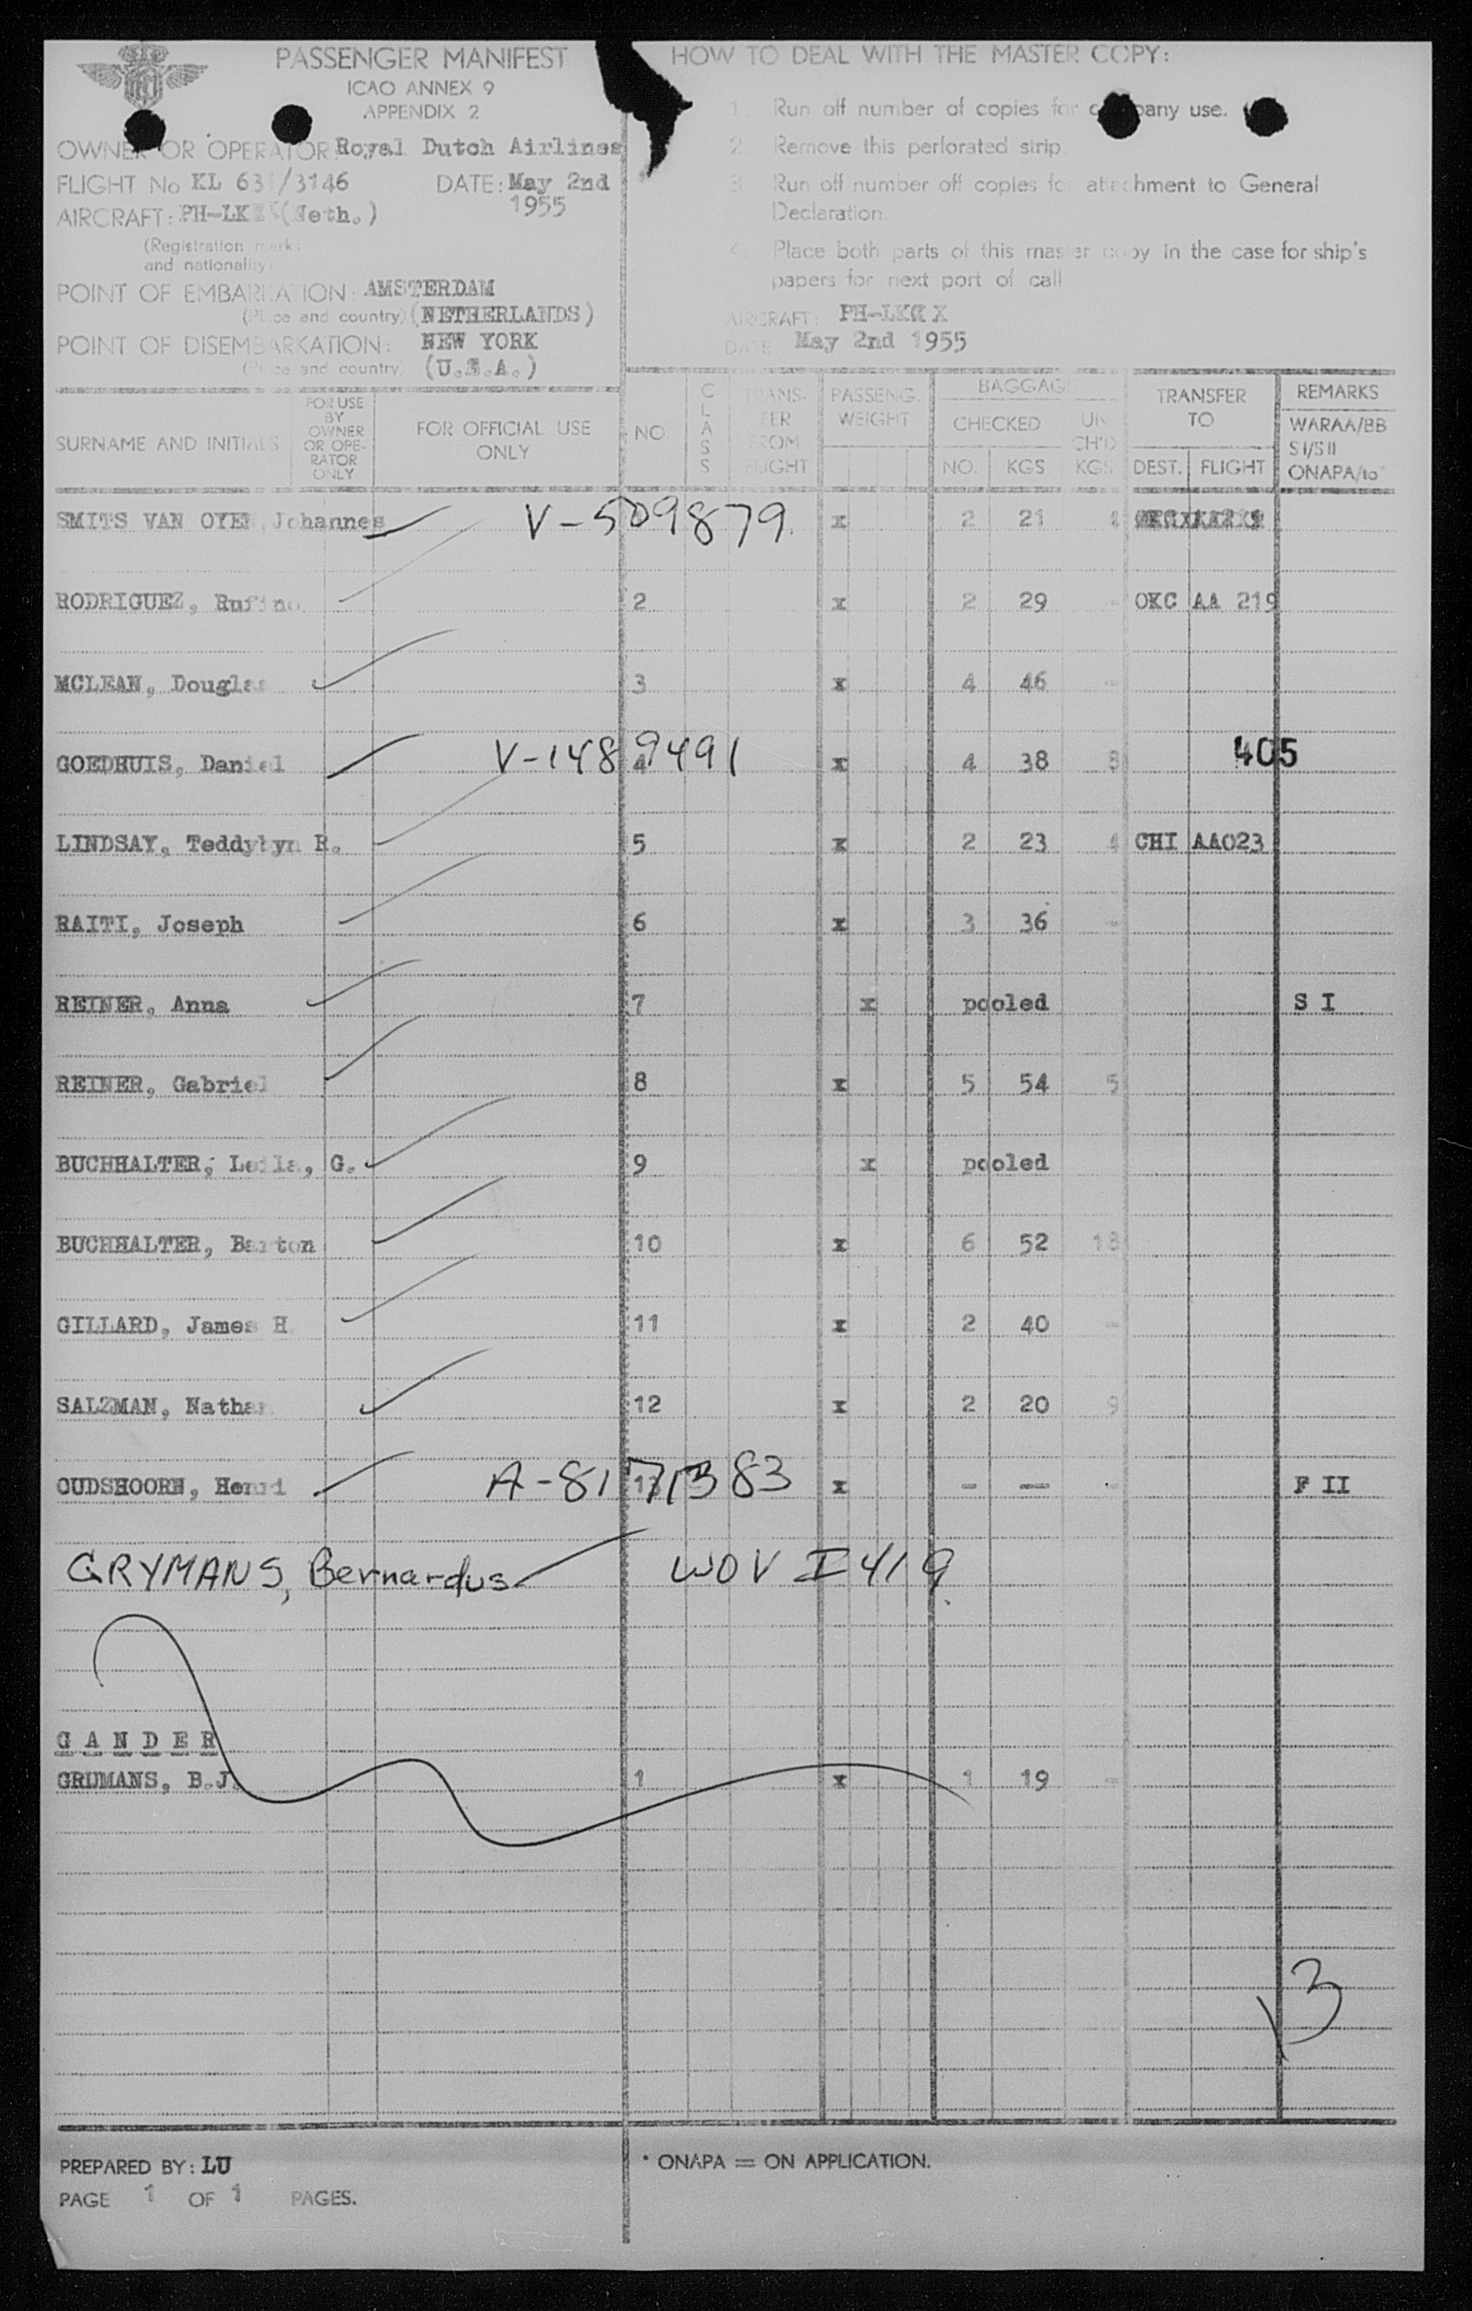 PASSENGER MANIFEST
ICAO ANNEX 9
APPENDIX 2
OWNER OR OPERATOR: Royal Dutch Airlines
FLIGHT No KL 63 /3146 DATE: May 2nd
1955
AIRCRAFT: PH-LK (Neth.)
(Registration marks
and nationality)
POINT OF EMBARKATION: AMSTERDAM
(Place and country) (NETHERLANDS)
POINT OF DISEMBARKATION: NEW YORK
(Place and country) (U.S.A.)
HOW TO DEAL WITH THE MASTER COPY:
1. Run off number of copies for company use.
2. Remove this perforated strip.
3. Run off number off copies for attachment to General
Declaration.
4. Place both parts of this master copy in the case for ship's
papers for next port of call
AIRCRAFT: PH-LK X
DATE May 2nd 1955
SURNAME AND INITIALS FOR USE BY OWNER OR OPE-RATOR ONLY FOR OFFICIAL USE ONLY NO. CLASS TRANS-FER FROM FLIGHT PASSENG. WEIGHT BAGGAGE CHECKED NO. KGS UN CH'D KGS TRANSFER TO DEST. FLIGHT REMARKS WARAA/BB SI/SII ONAPA/to*
SMITS VAN OYEN, Johannes V-509879. x 2 21
RODRIGUEZ, Rufino 2 x 2 29 - OKC AA 219
MCLEAN, Douglas 3 x 4 46 -
GOEDHUIS, Daniel V-1489491 4 x 4 38 8 405
LINDSAY, Teddylyn R. 5 x 2 23 4 CHI AA023
RAITI, Joseph 6 x 3 36 -
REINER, Anna 7 x pooled S I
REINER, Gabriel 8 x 5 54 5
BUCHHALTER, Leila, G. 9 x pooled
BUCHHALTER, Barton 10 x 6 52 18
GILLARD, James H. 11 x 2 40 -
SALZMAN, Nathan 12 x 2 20 9
OUDSHOORN, Henri A-8171383 13 x - - - F II
GRYMANS, Bernardus WOV I 419.
G A N D E R
GRIJMANS, B.J. 1 x 1 19 -
13
PREPARED BY: LU
PAGE 1 OF 1 PAGES.
* ONAPA = ON APPLICATION.